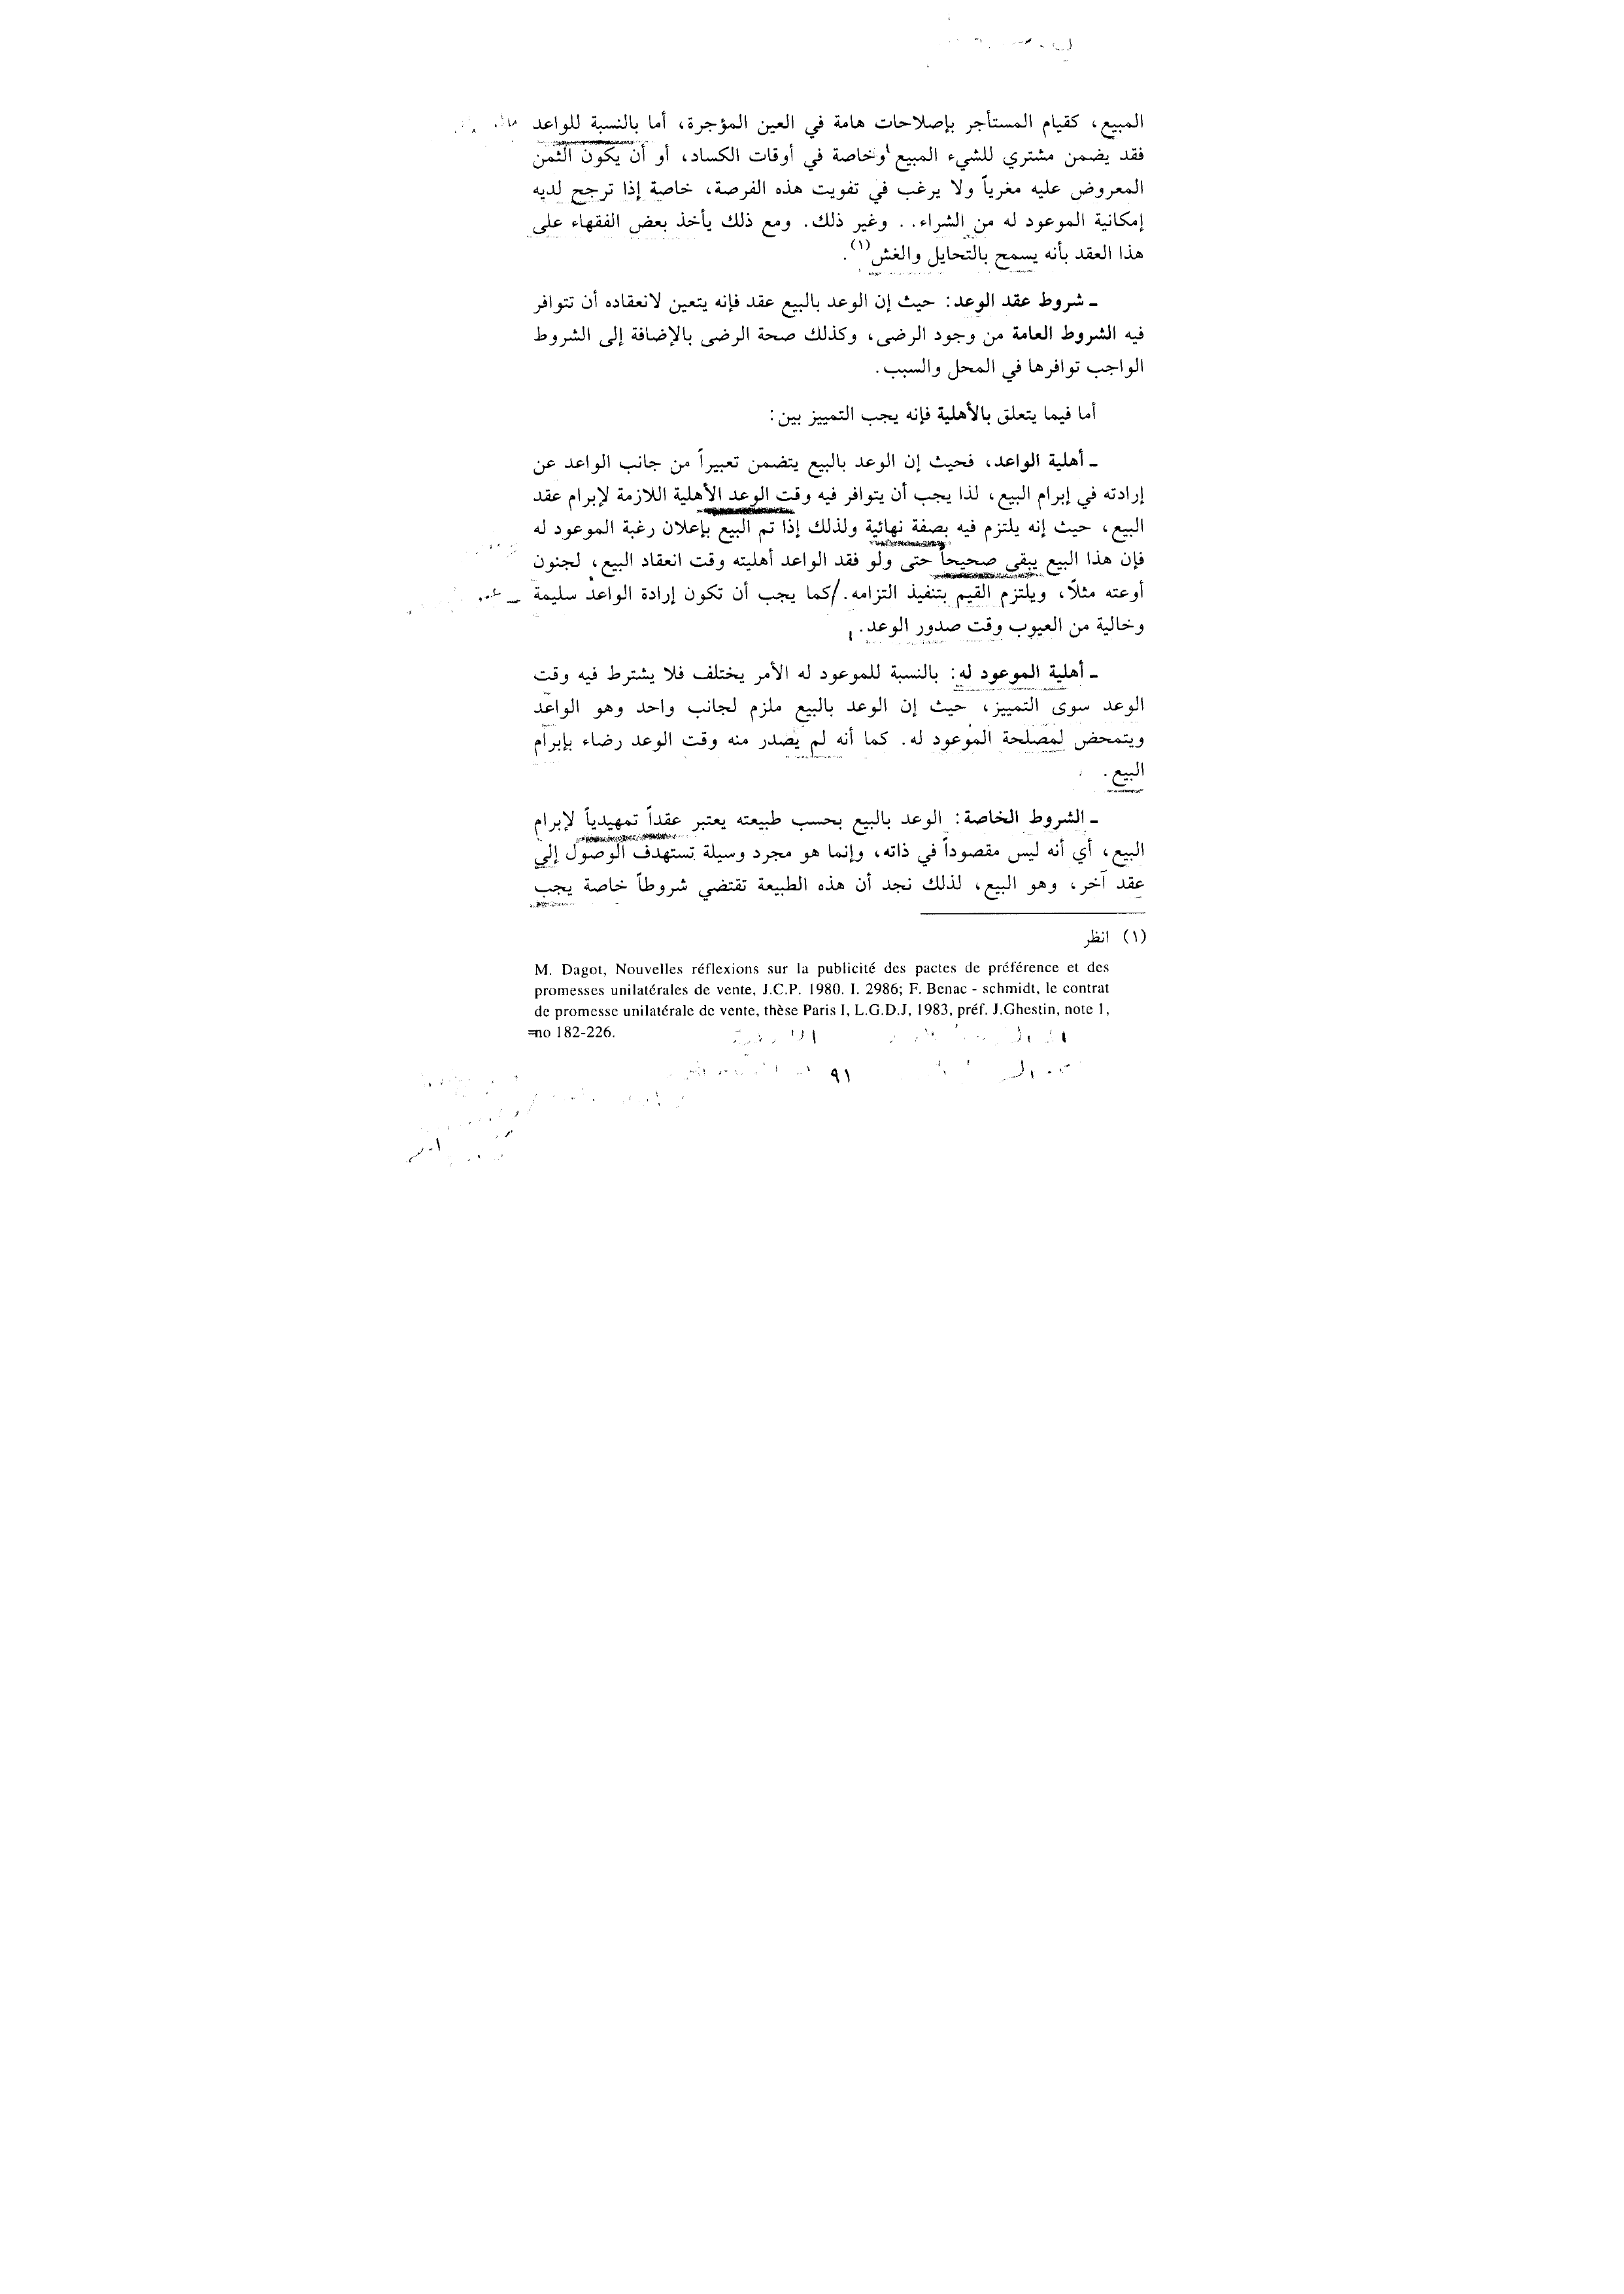 المبيع، كقيام المستأجر بإصلاحات هامة في العين المؤجرة، أما بالنسبة للواعد
فقد يضمن مشتري للشيء المبيع وخاصة في أوقات الكساد، أو أن يكون الثمن
المعروض عليه مغرياً ولا يرغب في تفويت هذه الفرصة، خاصة إذا ترجح لديه
إمكانية الموعود له من الشراء.. وغير ذلك. ومع ذلك يأخذ بعض الفقهاء على
هذا العقد بأنه يسمح بالتحايل والغش(١).
ـ شروط عقد الوعد: حيث إن الوعد بالبيع عقد فإنه يتعين لانعقاده أن تتوافر
فيه الشروط العامة من وجود الرضى، وكذلك صحة الرضى بالإضافة إلى الشروط
الواجب توافرها في المحل والسبب.
أما فيما يتعلق بالأهلية فإنه يجب التمييز بين:
ـ أهلية الواعد، فحيث إن الوعد بالبيع يتضمن تعبيراً من جانب الواعد عن
إرادته في إبرام البيع، لذا يجب أن يتوافر فيه وقت الوعد الأهلية اللازمة لإبرام عقد
البيع، حيث إنه يلتزم فيه بصفة نهائية ولذلك إذا تم البيع بإعلان رغبة الموعود له
فإن هذا البيع يبقى صحيحاً حتى ولو فقد الواعد أهليته وقت انعقاد البيع، لجنون
أوعته مثلاً، ويلتزم القيم بتنفيذ التزامه. كما يجب أن تكون إرادة الواعد سليمة
وخالية من العيوب وقت صدور الوعد.
ـ أهلية الموعود له: بالنسبة للموعود له الأمر يختلف فلا يشترط فيه وقت
الوعد سوى التمييز، حيث إن الوعد بالبيع ملزم لجانب واحد وهو الواعد
ويتمحض لمصلحة الموعود له. كما أنه لم يصدر منه وقت الوعد رضاء بإبرام
البيع.
ـ الشروط الخاصة: الوعد بالبيع بحسب طبيعته يعتبر عقداً تمهيدياً لإبرام
البيع، أي أنه ليس مقصوداً في ذاته، وإنما هو مجرد وسيلة تستهدف الوصول إلى
عقد آخر، وهو البيع، لذلك نجد أن هذه الطبيعة تقتضي شروطاً خاصة يجب
(١) انظر
M. Dagot, Nouvelles réflexions sur la publicité des pactes de préférence et des
promesses unilatérales de vente, J.C.P. 1980. I. 2986; F. Benac - schmidt, le contrat
de promesse unilatérale de vente, thèse Paris I, L.G.D.J, 1983, préf. J.Ghestin, note 1,
=no 182-226.
٩١